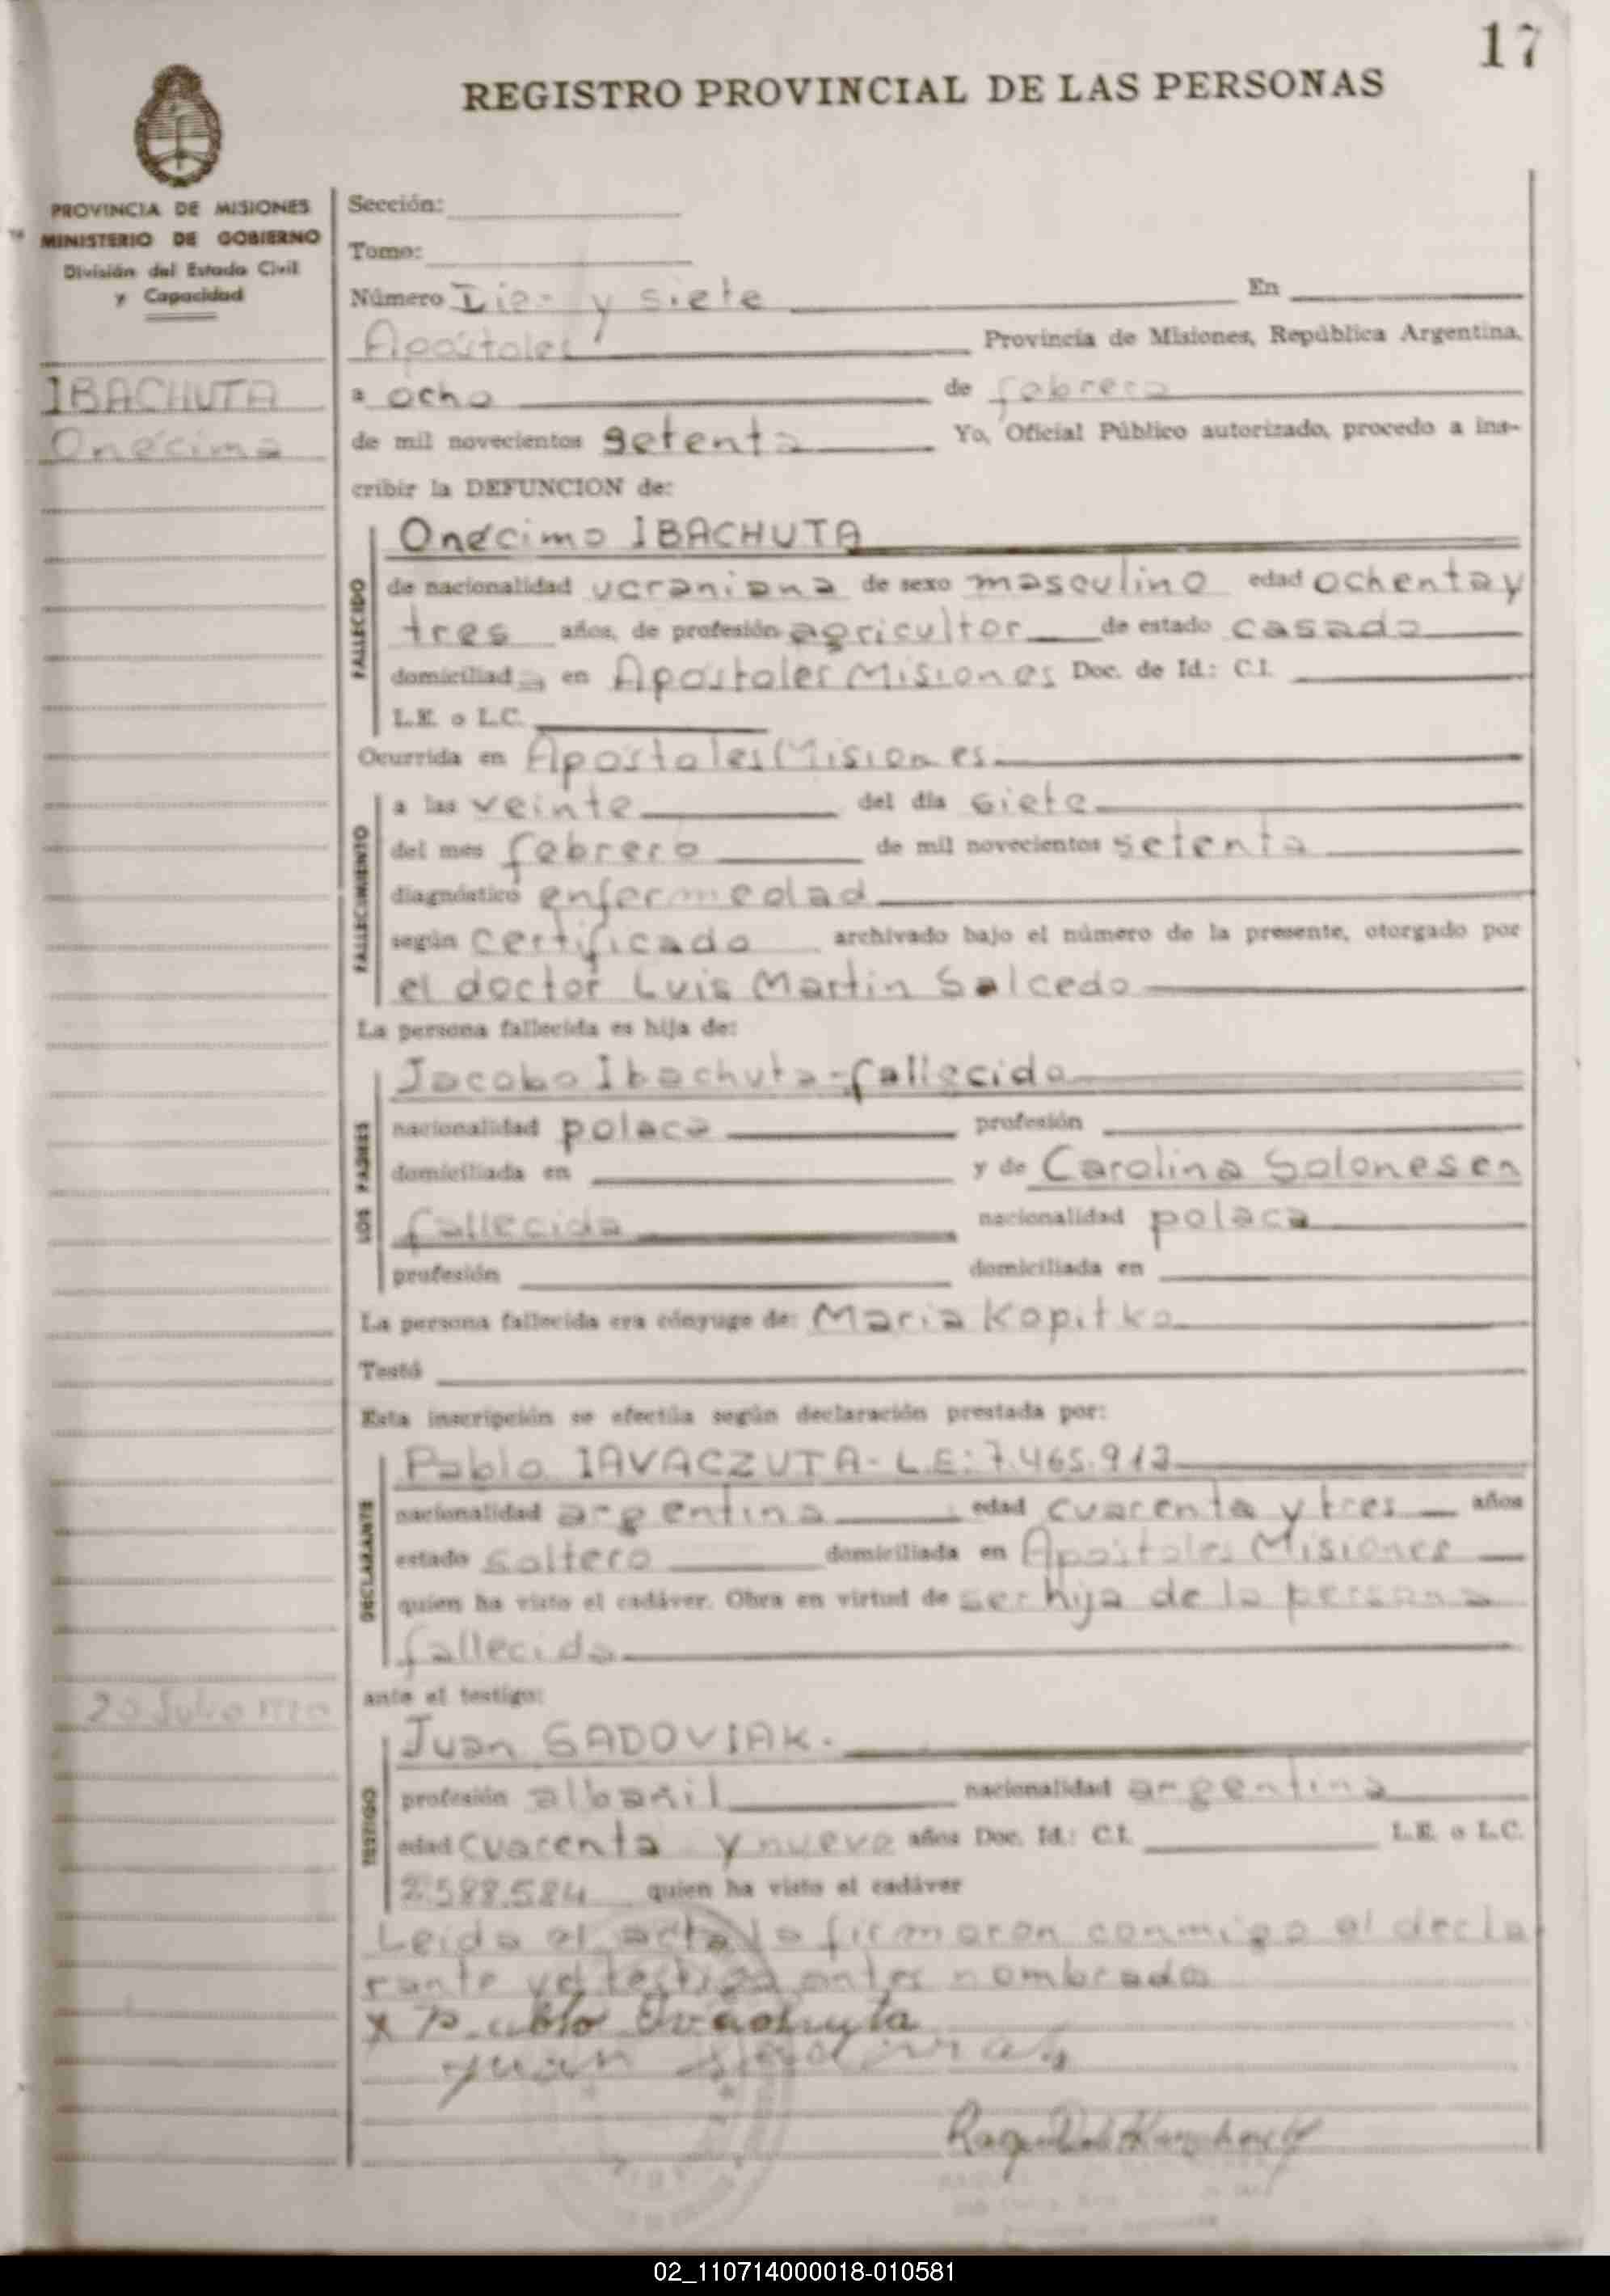 17
REGISTRO PROVINCIAL DE LAS PERSONAS
PROVINCIA DE MISIONES
MINISTERIO DE GOBIERNO
División del Estado Civil
y Capacidad
IBACHUTA
Onécima
Sección:
Tomo:
Número Diez y siete En
Apóstoles Provincia de Misiones, República Argentina,
a ocho de febrero
de mil novecientos setenta Yo, Oficial Público autorizado, procedo a ins-
cribir la DEFUNCION de:
FALLECIDO
Onécimo IBACHUTA
de nacionalidad ucraniana de sexo masculino edad ochenta y
tres años, de profesión agricultor de estado casado
domiciliad o en Apóstoles Misiones Doc. de Id.: C.I.
L.E. o L.C.
Ocurrida en Apóstoles Misiones
FALLECIMIENTO
a las veinte del día siete
del mes febrero de mil novecientos setenta
diagnóstico enfermedad
según certificado archivado bajo el número de la presente, otorgado por
el doctor Luis Martin Salcedo
La persona fallecida es hija de:
LOS PADRES
Jacobo Ibachuta-fallecido
nacionalidad polaca profesión
domiciliada en y de Carolina Solonesen
fallecida nacionalidad polaca
profesión domiciliada en
La persona fallecida era cónyuge de: Maria Kopitko
Testó
Esta inscripción se efectúa según declaración prestada por:
DECLARANTE
Pablo IAVACZUTA- L.E: 7.465.912
nacionalidad argentina edad cuarenta y tres años
estado soltero domiciliada en Apóstoles Misiones
quien ha visto el cadáver. Obra en virtud de ser hija de la persona
fallecida
20 Julio
ante el testigo:
TESTIGO
Juan SADOVIAK.
profesión albañil nacionalidad argentina
edad cuarenta y nueve años Doc. Id.: C.I. L.E. o L.C.
2.588.584 quien ha visto el cadáver
Leida el acta la firmaron conmigo el decla
rante y el testigo antes nombrado
x Pablo Ivachuta
Juan
02_110714000018-010581